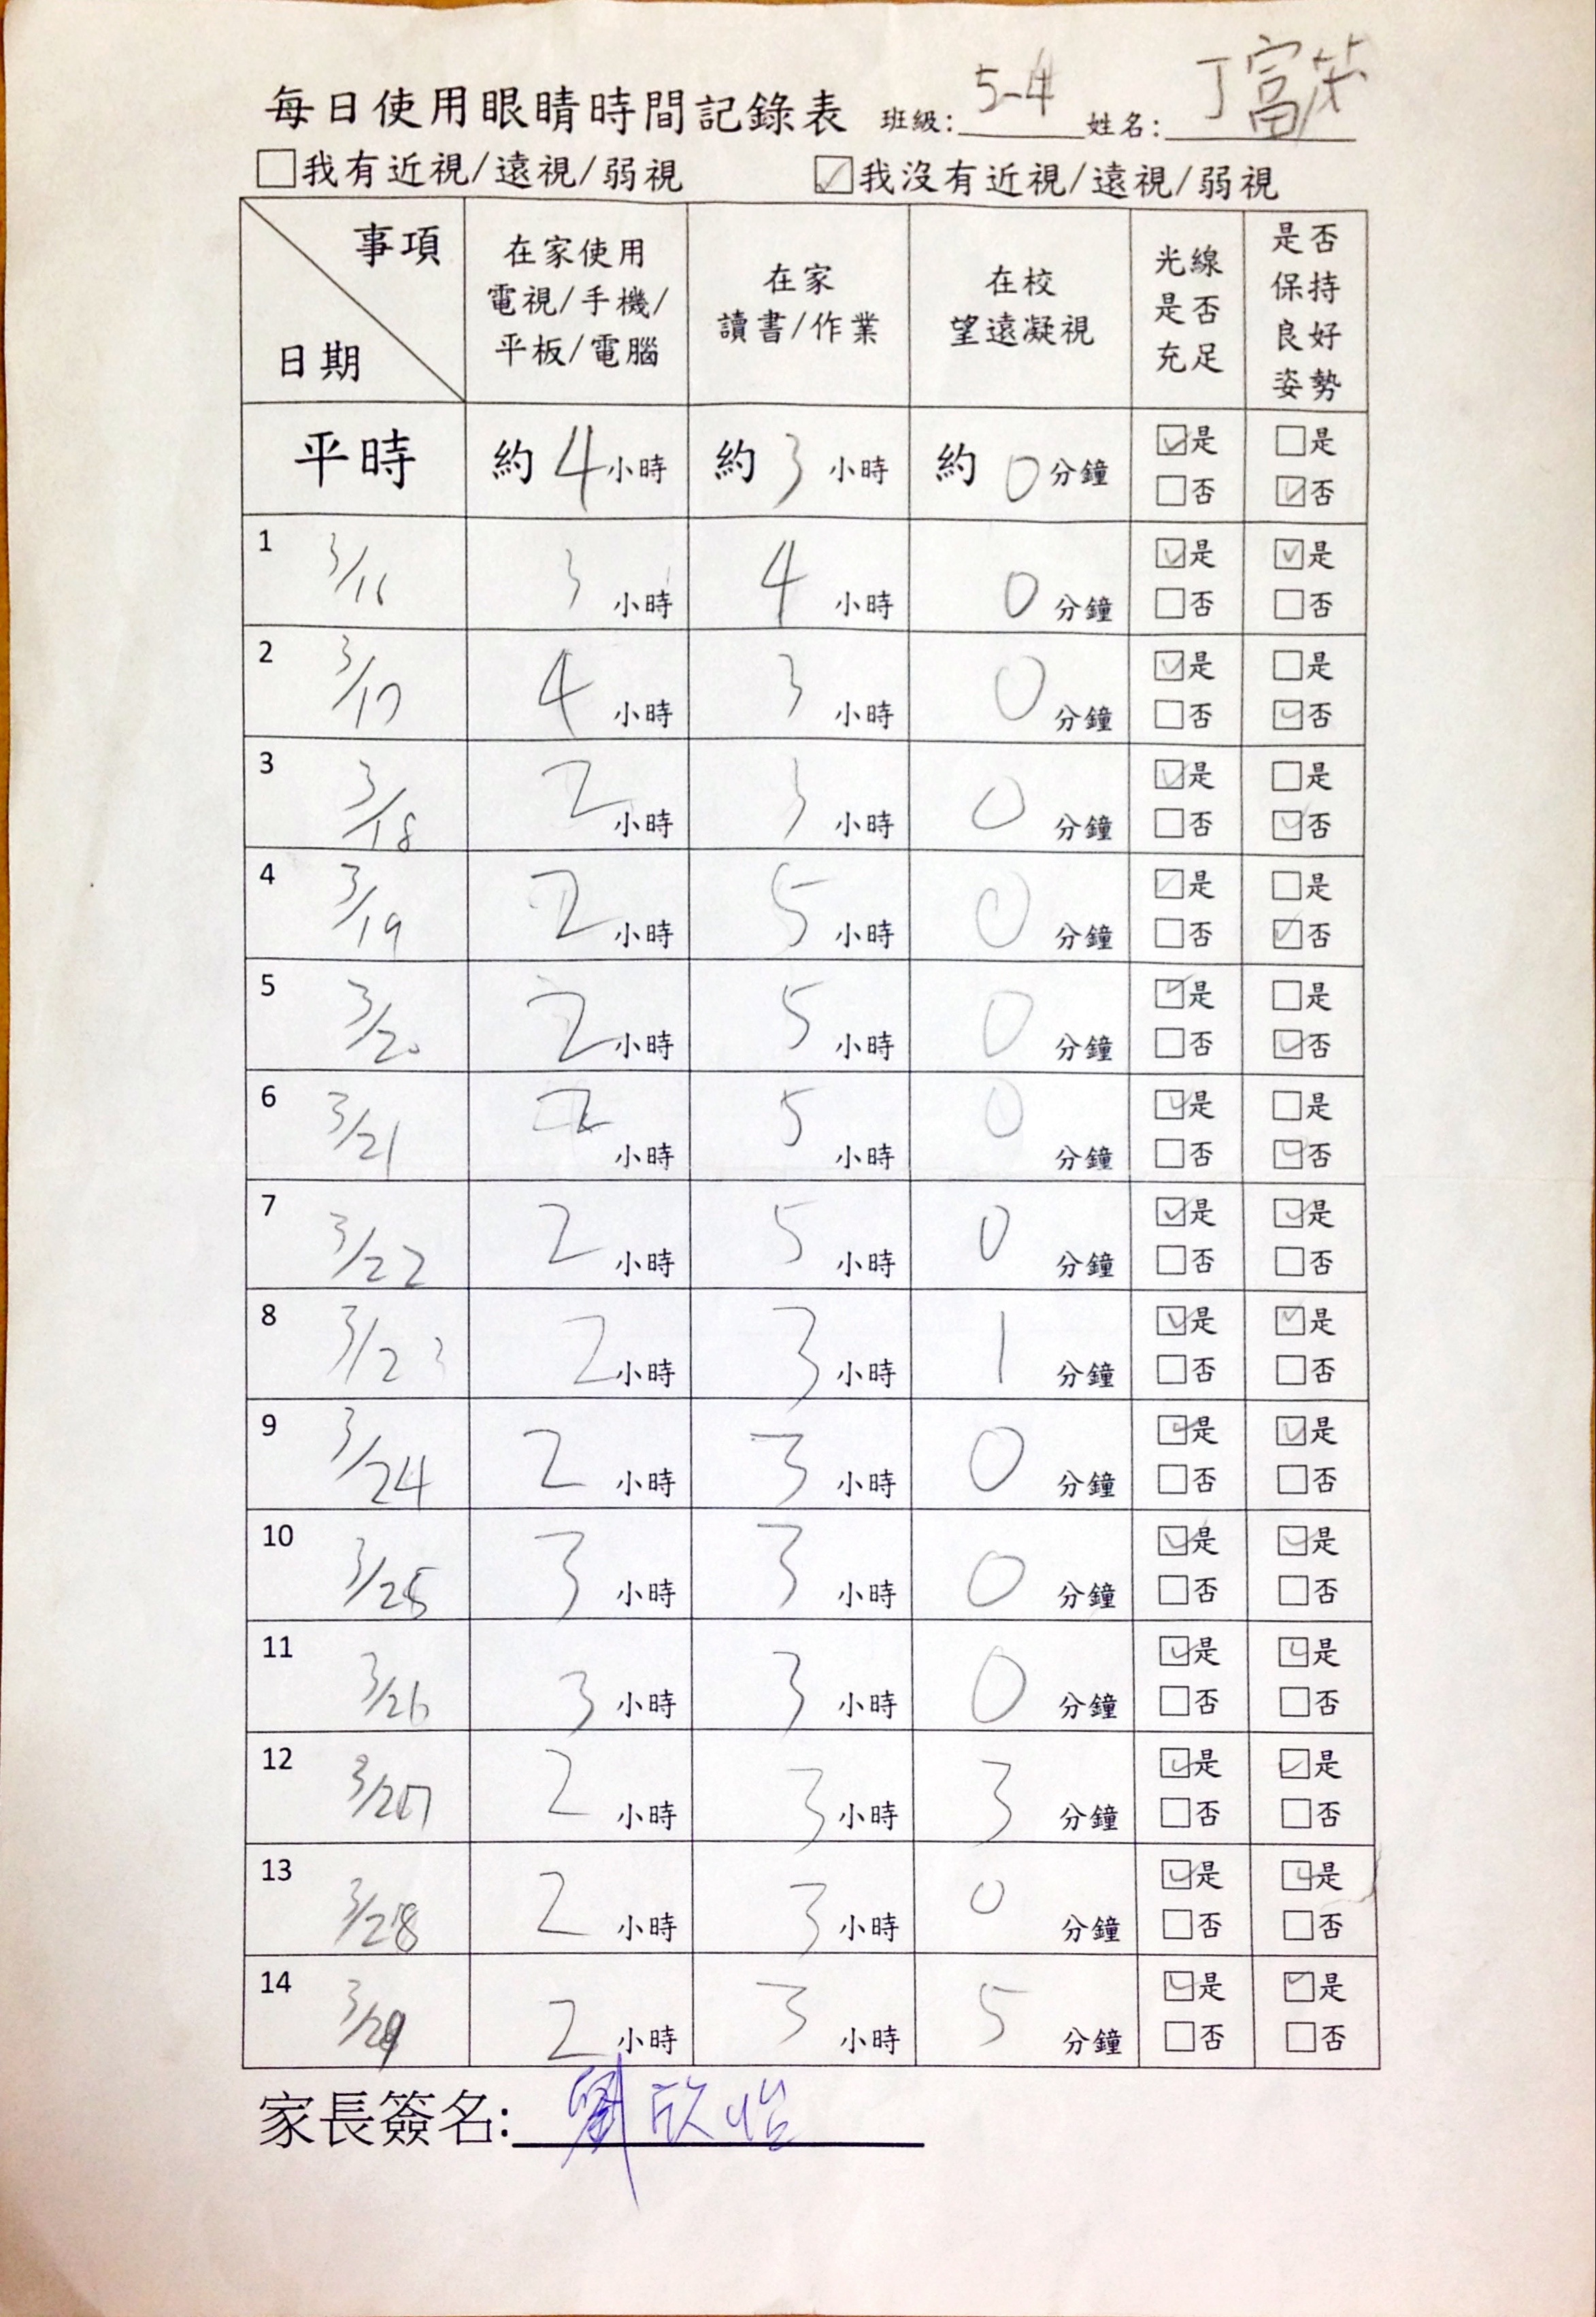 每日使用眼睛時間記錄表 班級:5-4 姓名:丁富
☐我有近視/遠視/弱視 ☑我沒有近視/遠視/弱視
事項 日期 在家使用電視/手機/平板/電腦 在家讀書/作業 在校望遠凝視 光線是否充足 是否保持良好姿勢
平時 約4小時 約3小時 約0分鐘 ☑是☐否 ☐是☑否
1 3/16 3小時 4小時 0分鐘 ☑是☐否 ☑是☐否
2 3/17 4小時 3小時 0分鐘 ☑是☐否 ☐是☑否
3 3/18 2小時 3小時 0分鐘 ☑是☐否 ☐是☑否
4 3/19 2小時 5小時 0分鐘 ☑是☐否 ☐是☑否
5 3/20 2小時 5小時 0分鐘 ☑是☐否 ☐是☑否
6 3/21 2小時 5小時 0分鐘 ☑是☐否 ☐是☑否
7 3/22 2小時 5小時 0分鐘 ☑是☐否 ☑是☐否
8 3/23 2小時 3小時 1分鐘 ☑是☐否 ☑是☐否
9 3/24 2小時 3小時 0分鐘 ☑是☐否 ☑是☐否
10 3/25 3小時 3小時 0分鐘 ☑是☐否 ☑是☐否
11 3/26 3小時 3小時 0分鐘 ☑是☐否 ☑是☐否
12 3/27 2小時 3小時 3分鐘 ☑是☐否 ☑是☐否
13 3/28 2小時 3小時 0分鐘 ☑是☐否 ☑是☐否
14 3/29 2小時 3小時 5分鐘 ☑是☐否 ☑是☐否
家長簽名:劉欣怡